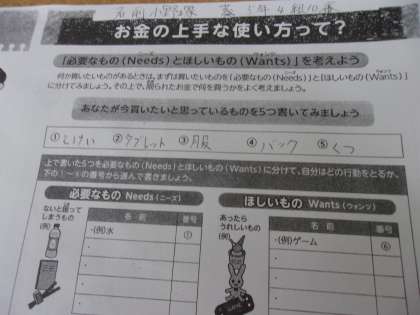 お金の上手な使い方って?
「必要なもの(Needs)とほしいもの(Wants)」を考えよう
何か買いたいものがあるときは、まずは買いたいものを「必要なもの(Needs)」と「ほしいもの(Wants)」
に分けてみましょう。その上で、限られたお金で何を買うかをよく考えましょう。
あなたが今買いたいと思っているものを5つ書いてみましょう
①とけい ②タブレット ③服 ④バック ⑤くつ
上で書いた5つを必要なもの(Needs)とほしいもの(Wants)に分けて、自分はどの行動をとるか、
下の①~⑥の番号から選んで書きましょう。
必要なもの Needs(ニーズ)
ないと困って
しまうもの
(例)
名前 番号
・(例)水 ①
ほしいもの Wants(ウォンツ)
あったら
うれしいもの
(例)
名前 番号
・(例)ゲーム ⑥